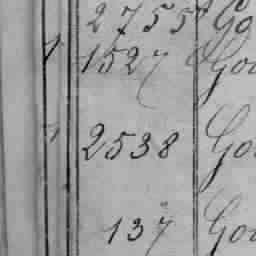 2755 Go
1 1527 Gou
1 2538 Gou
137 Gou